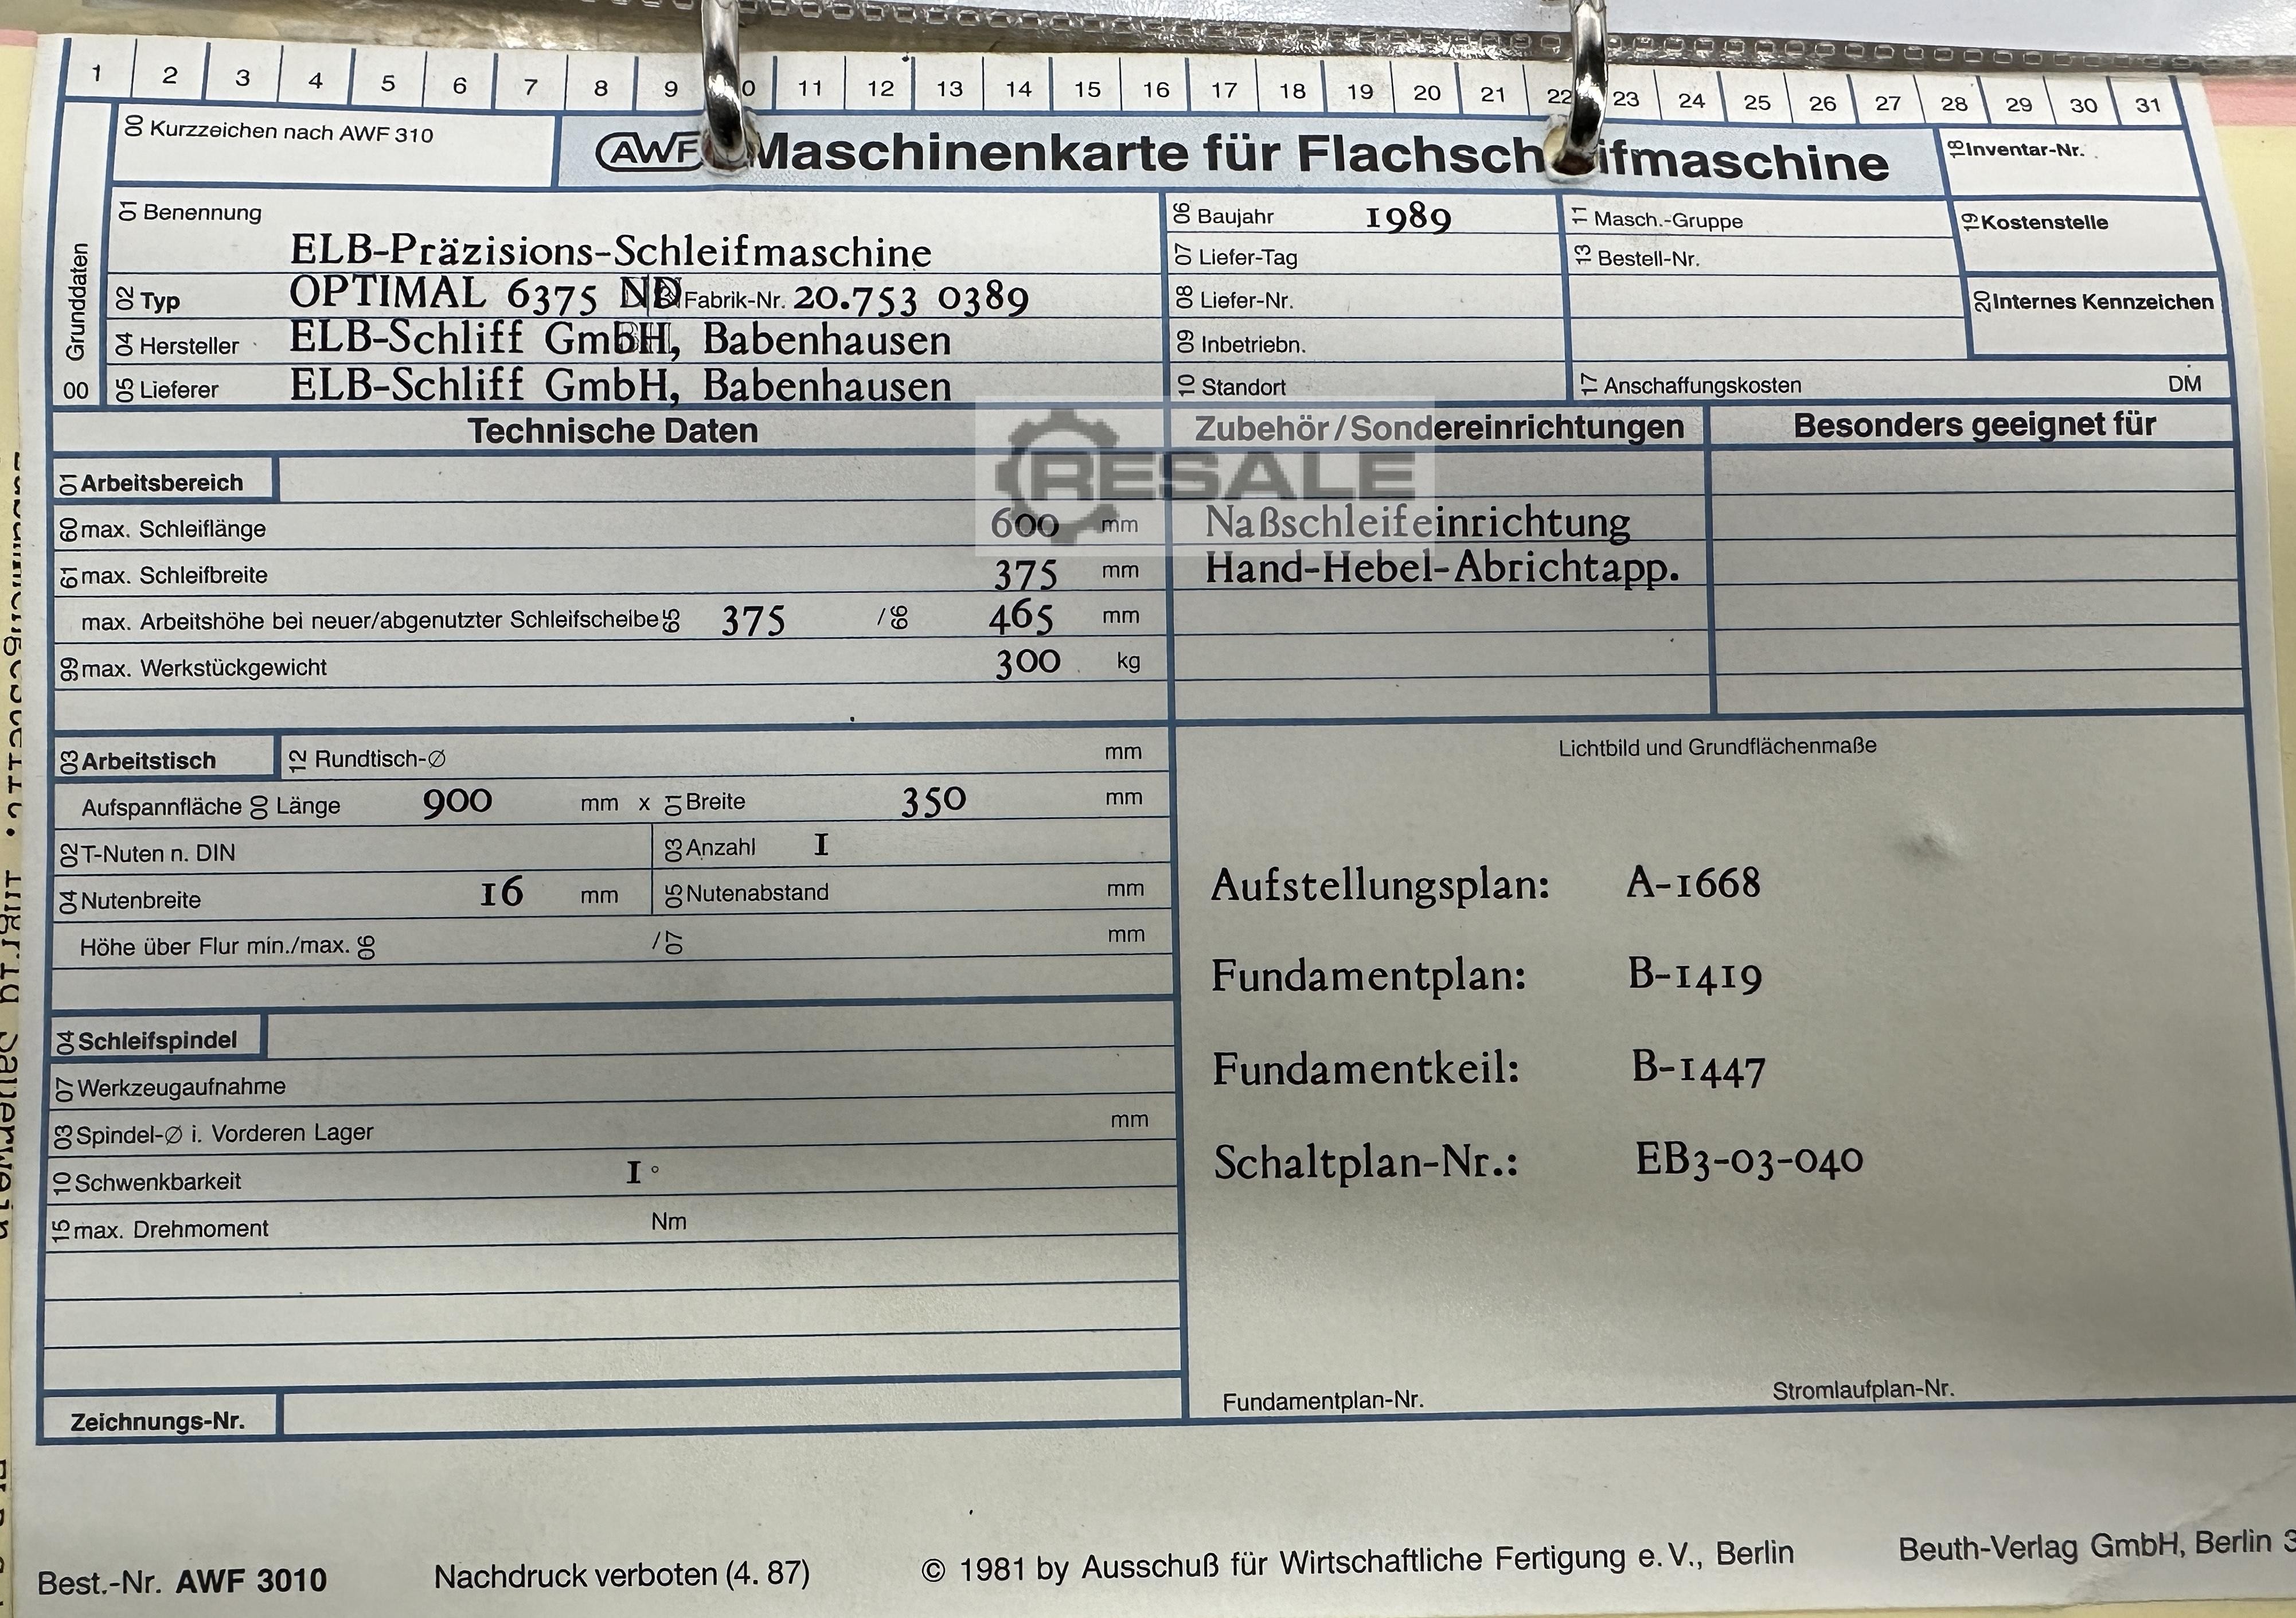 1 2 3 4 5 6 7 8 9 0 11 12 13 14 15 16 17 18 19 20 21 22 23 24 25 26 27 28 29 30 31
00 Kurzzeichen nach AWF 310
AWF Maschinenkarte für Flachsch ifmaschine
18 Inventar-Nr.
Grunddaten
00
01 Benennung
ELB-Präzisions-Schleifmaschine
06 Baujahr 1989
11 Masch.-Gruppe
19 Kostenstelle
07 Liefer-Tag
13 Bestell-Nr.
02 Typ OPTIMAL 6375 ND Fabrik-Nr. 20.753 0389
08 Liefer-Nr.
20 Internes Kennzeichen
04 Hersteller ELB-Schliff GmbH, Babenhausen
09 Inbetriebn.
05 Lieferer ELB-Schliff GmbH, Babenhausen
10 Standort
17 Anschaffungskosten DM
Technische Daten
Zubehör/Sondereinrichtungen
Besonders geeignet für
RESALE
01 Arbeitsbereich
60 max. Schleiflänge 600 mm
Naßschleifeinrichtung
61 max. Schleifbreite 375 mm
Hand-Hebel-Abrichtapp.
max. Arbeitshöhe bei neuer/abgenutzter Schleifscheibe 65 375 /66 465 mm
99 max. Werkstückgewicht 300 kg
03 Arbeitstisch 12 Rundtisch-Ø mm
Aufspannfläche 00 Länge 900 mm x 01 Breite 350 mm
02 T-Nuten n. DIN 03 Anzahl 1
04 Nutenbreite 16 mm 05 Nutenabstand mm
Höhe über Flur min./max. 06 /07 mm
04 Schleifspindel
07 Werkzeugaufnahme
03 Spindel-Ø i. Vorderen Lager mm
10 Schwenkbarkeit 1 °
15 max. Drehmoment Nm
Zeichnungs-Nr.
Lichtbild und Grundflächenmaße
Aufstellungsplan: A-1668
Fundamentplan: B-1419
Fundamentkeil: B-1447
Schaltplan-Nr.: EB3-03-040
Fundamentplan-Nr. Stromlaufplan-Nr.
Best.-Nr. AWF 3010 Nachdruck verboten (4. 87) © 1981 by Ausschuß für Wirtschaftliche Fertigung e.V., Berlin Beuth-Verlag GmbH, Berlin 3